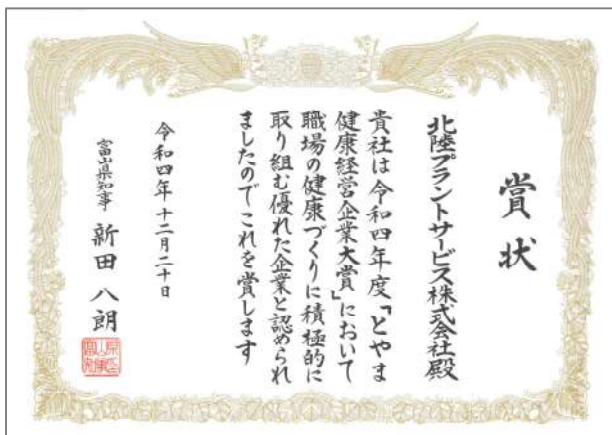 賞状
北陸プラントサービス株式会社殿
貴社は令和四年度「とやま
健康経営企業大賞」において
職場の健康づくりに積極的に
取り組む優れた企業と認められ
ましたのでこれを賞します
令和四年十二月二十日
富山県知事 新田 八朗